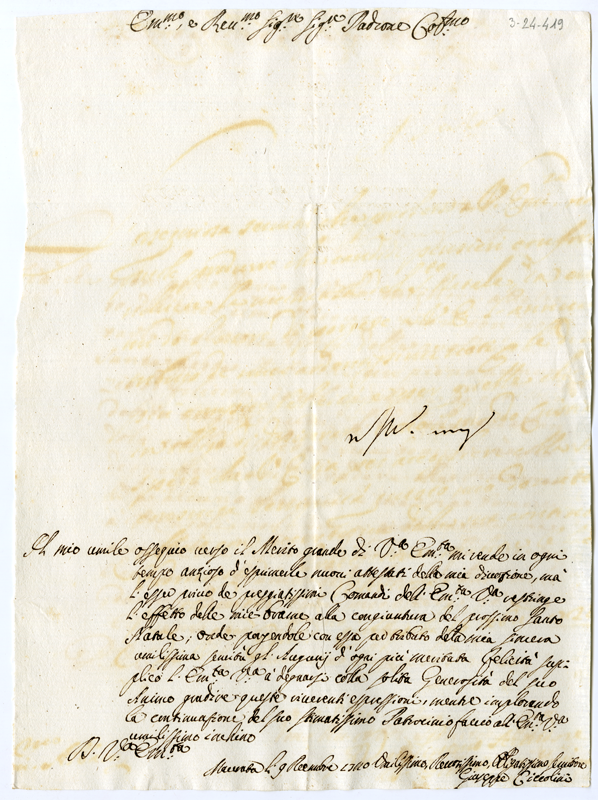 Em.mo, e Rev.mo Sig.re Sig.re Padrone Col.mo
3-24-419
Il mio umile ossequio verso il Merito grande di V.ra Em.za mi rende in ogni
tempo anzioso d'esprimerle nuovi attestati della mia divozione, mà
l'esser privo de pregiatissimi Comandi dell'Em.za V.ra restringe
l'effetto delle mie brame alla congiuntura del prossimo Santo
Natale; onde porgendole con essa per tributo della mia sincera
umilissima servitù gl'Augurij d'ogni più meritata felicità sup-
plico l'Em.za V.ra à degnarsi colla solita Generosità del suo
Animo gradire queste riverenti espressioni, mentre implorando
la continuazione del suo stimatissimo Patrocinio faccio all'Em.za V.ra
umilissimo inchino
D. V.ra Em.za
Macerata li 9 Decembre 1710 Umilissimo, Devotissimo, Servitore
Giuseppe Ciccolini